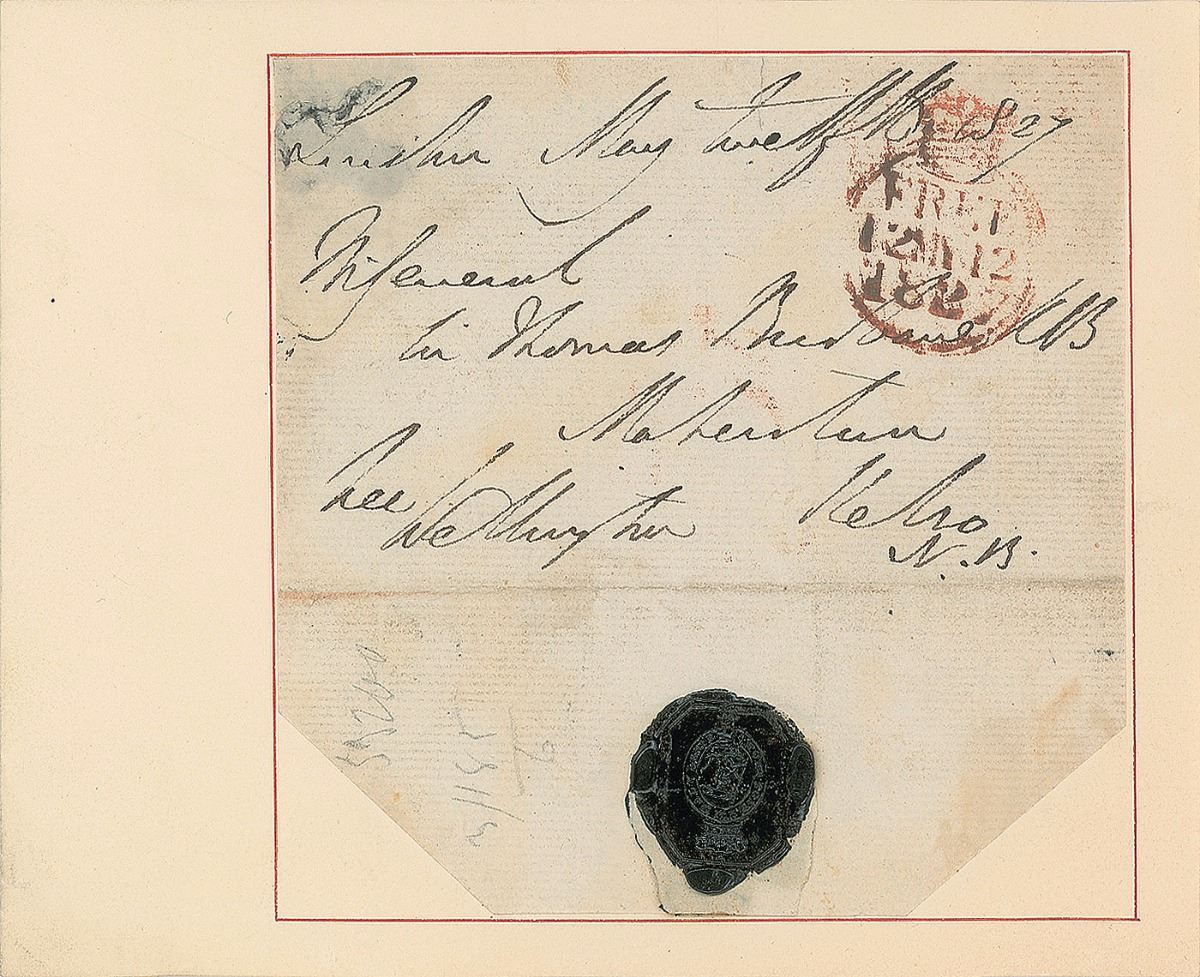 London May twelfth 1827
FREE
12 MY 12
1827
M General
Sir Thomas Brisbane KCB
Makerstoun
Free
Kelso
Wellington
N.B.